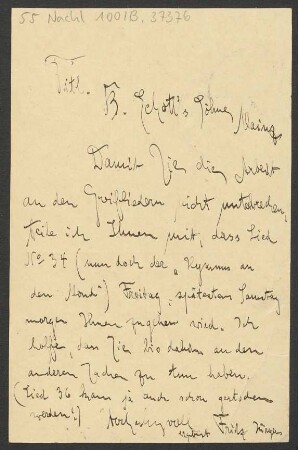 55 Nachl 100/B, 37376
Titl.
B. Schott's Söhne Mainz
Damit Sie die Arbeit
an den Greifliedern nicht unterbrechen,
teile ich Ihnen mit, dass Lied
No 34 (nun doch der „Hymnus an
den Mond") Freitag, spätestens Samstag
morgen Ihnen zugehen wird. Ich
hoffe, dass Sie bis dahin an den
anderen Sachen zu tun haben.
(Lied 36 kann ja auch schon gestochen
werden!) Hochachtungsvoll
ergebenst Fritz Jürgens